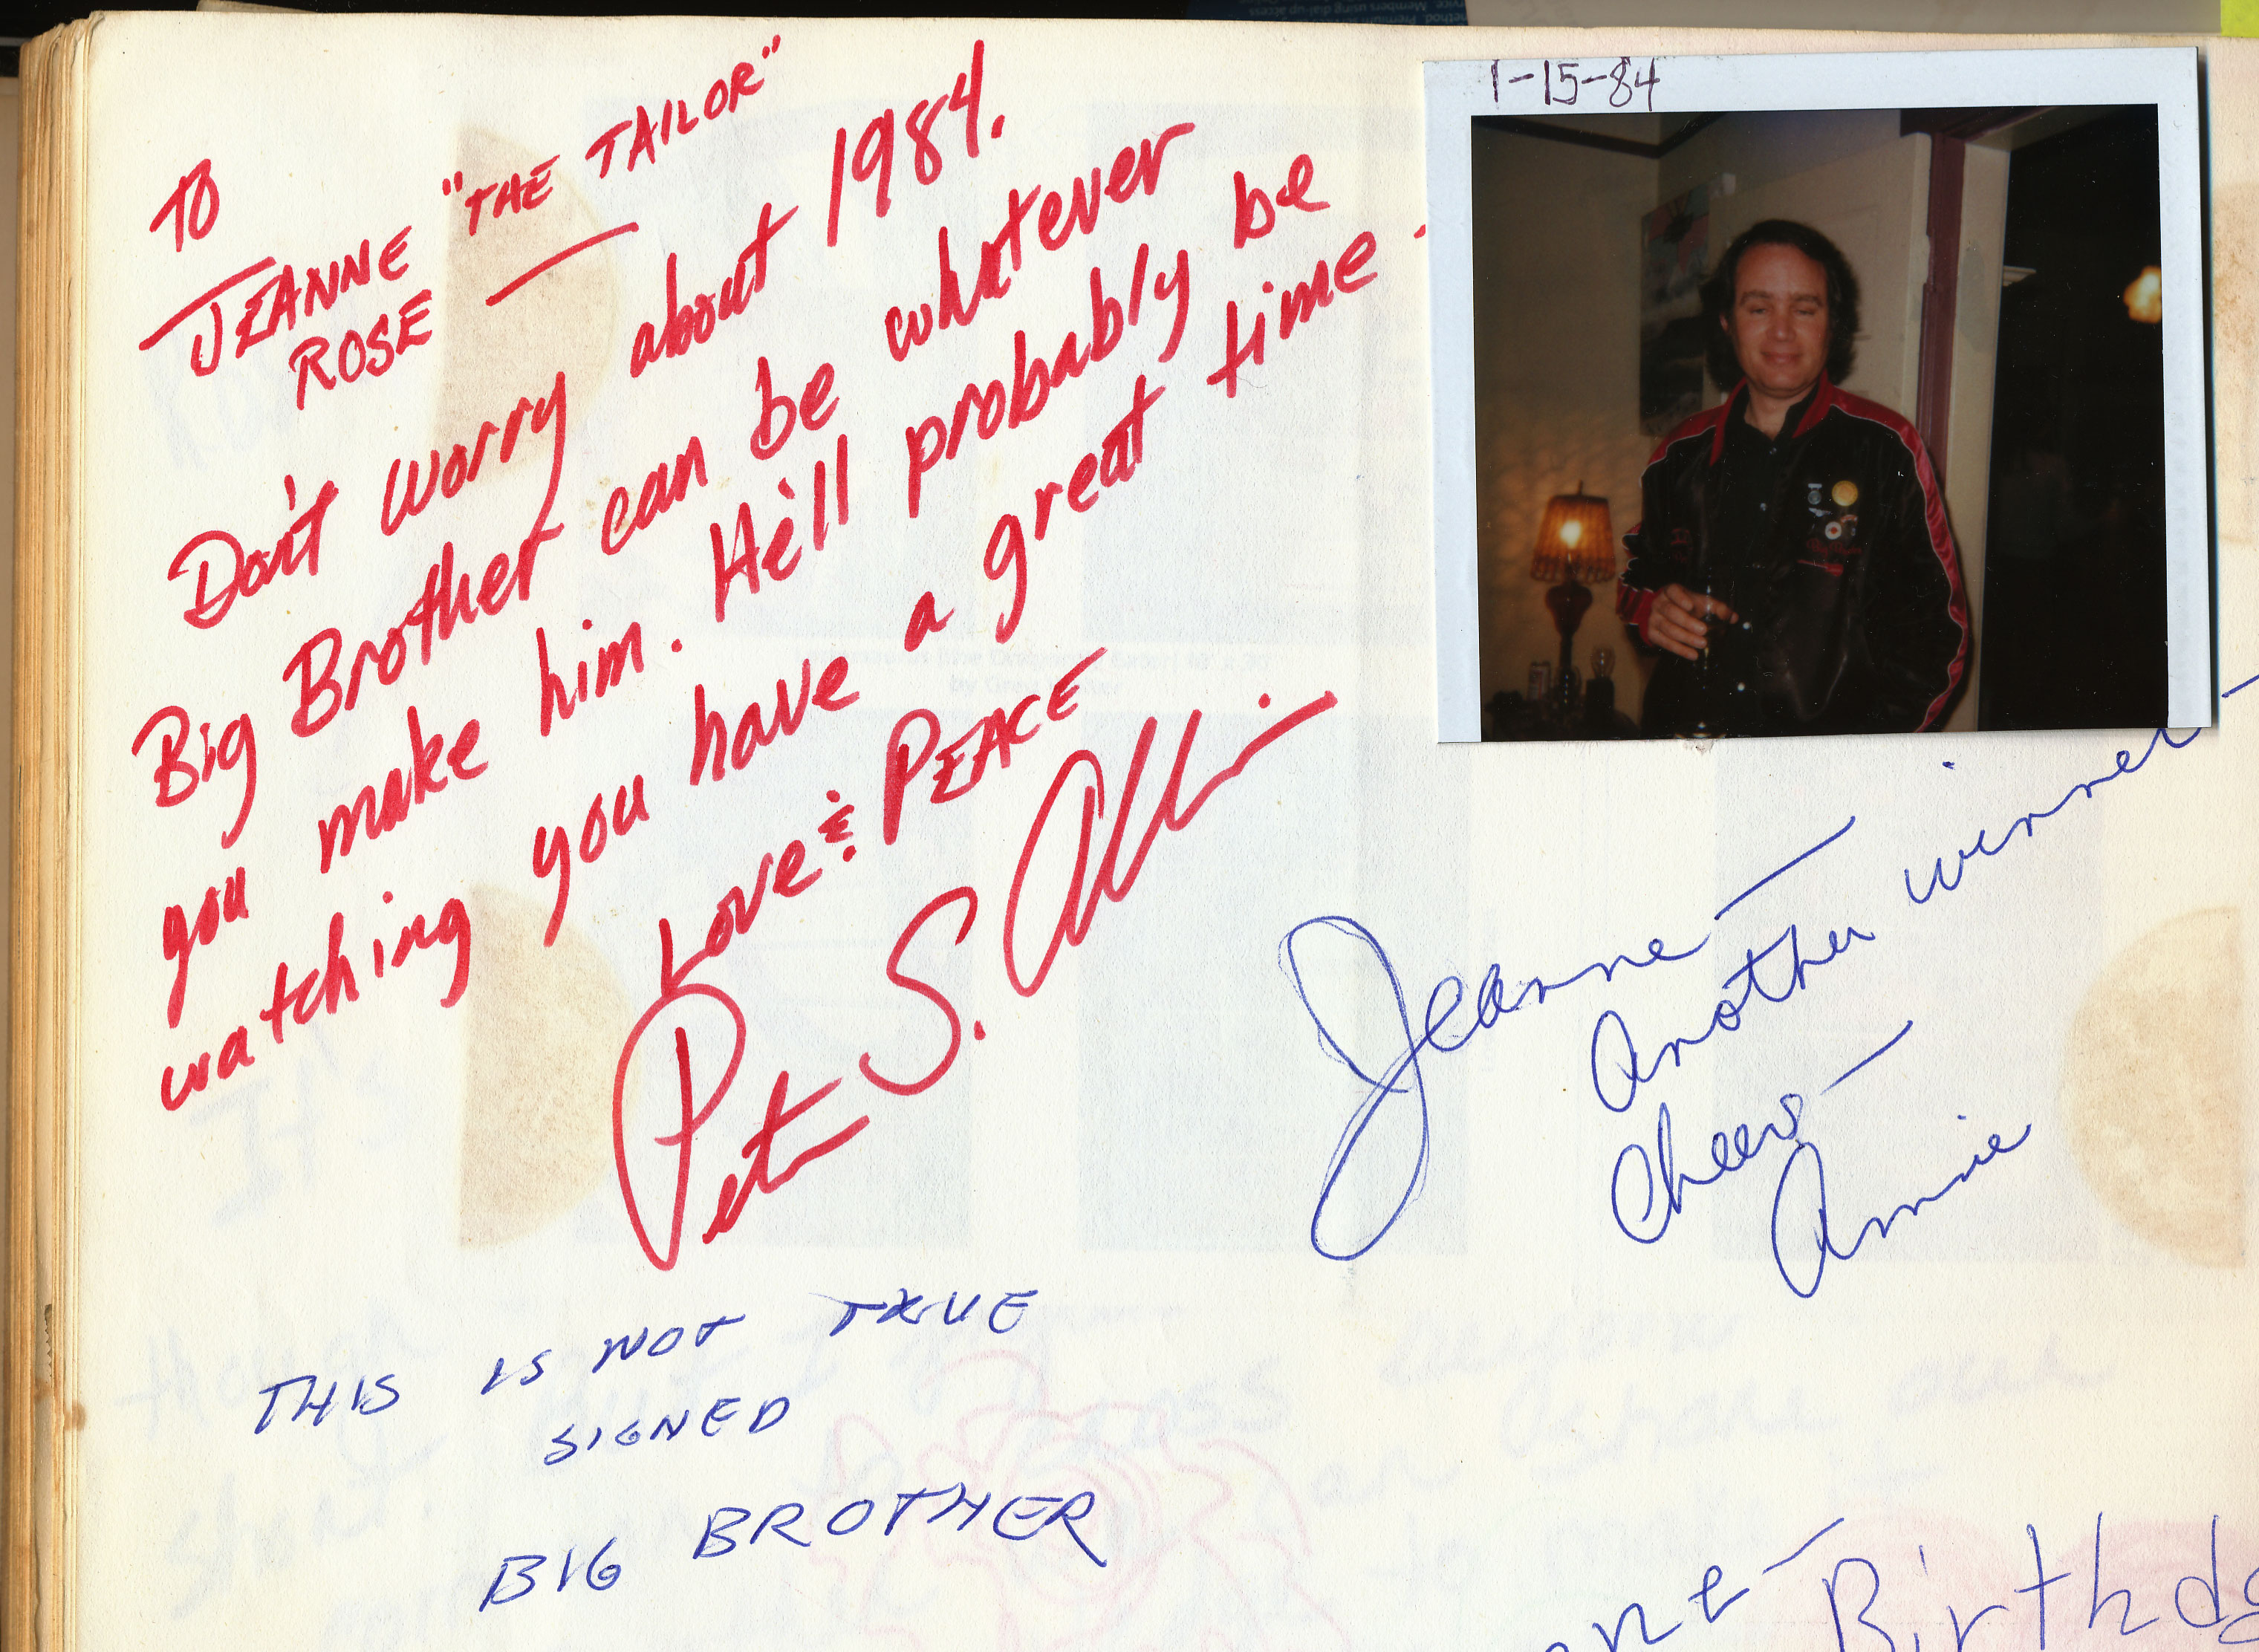 TO
JEANNE "THE TAILOR"
ROSE —
Don't worry about 1984.
Big Brother can be whatever
you make him. He'll probably be
watching you have a great time -
LOVE & PEACE
Peter S.
1-15-84
Jeanne —
Another winner —
Cheers —
Annie
THIS IS NOT TRUE
SIGNED
BIG BROTHER